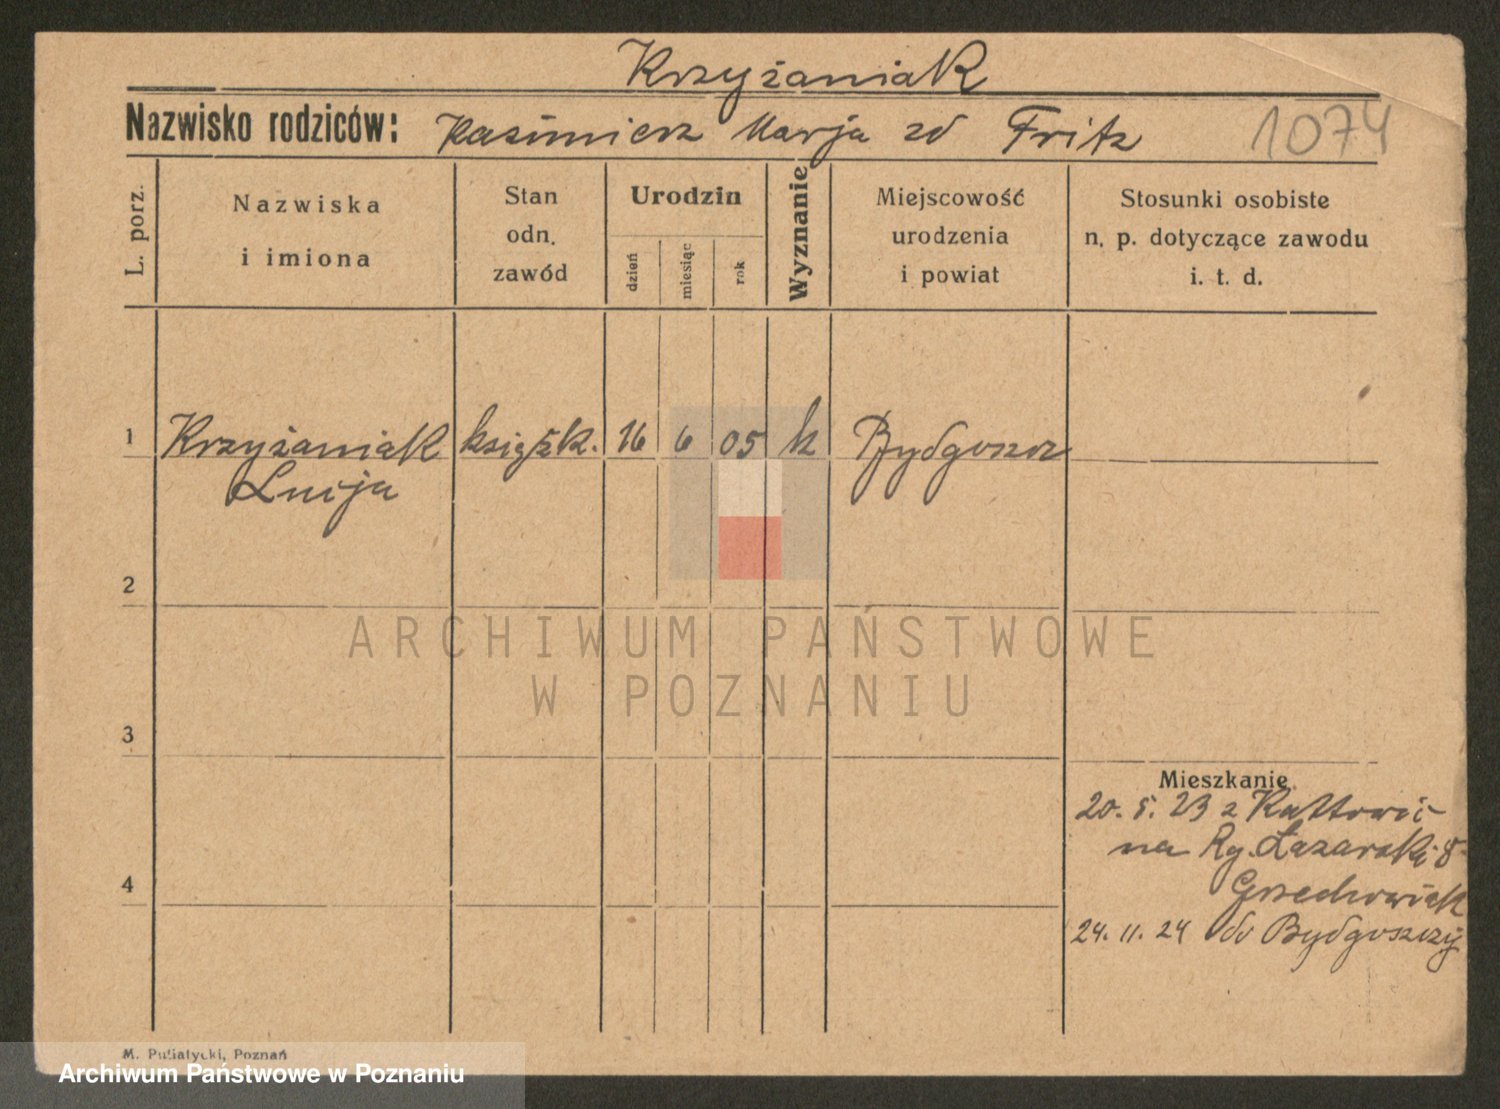 Krzyżaniak
Nazwisko rodziców: Kasimierz Marja zd Fritz
1074
L. porz.
Nazwiska
i imiona
Stan
odn.
zawód
Urodzin
dzień
miesiąc
rok
Wyznanie
Miejscowość
urodzenia
i powiat
Stosunki osobiste
n. p. dotyczące zawodu
i. t. d.
1 Krzyżaniak książk. 16 6 05 k Bydgoszcz
Lucja
2
3
4
Mieszkanie
20. 5. 23 z Kattowic
na Ry. Łazarski 8
Grzechowiak
24. 11. 24 do Bydgoszczy
ARCHIWUM PAŃSTWOWE
W POZNANIU
M. Putiatycki, Poznań
Archiwum Państwowe w Poznaniu